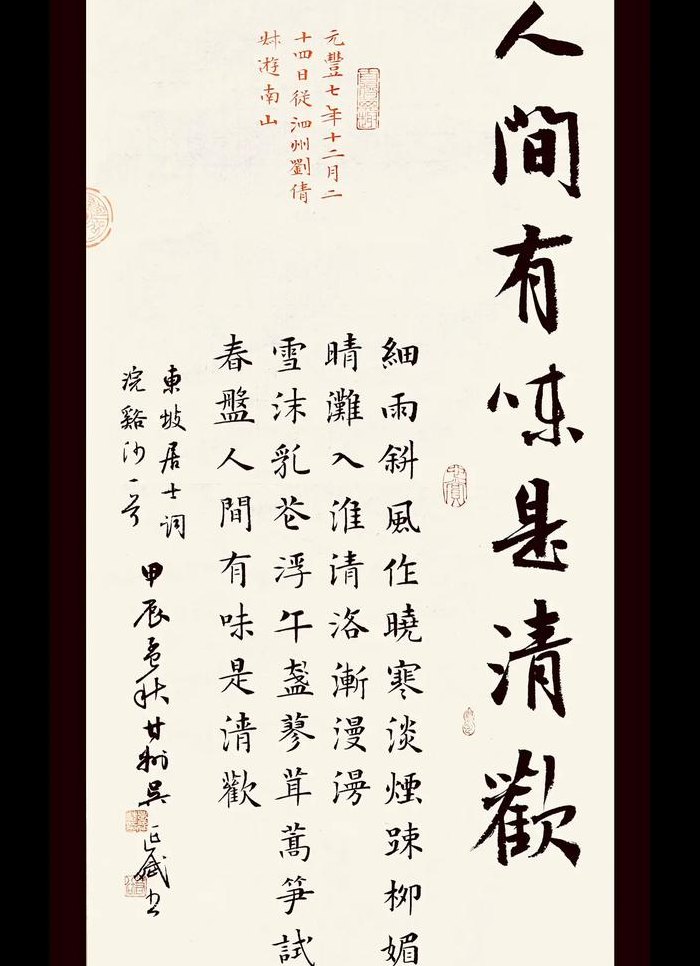 人間有味是清歡
元豐七年十二月二
十四日從泗州劉倩
叔遊南山
細雨斜風作曉寒淡煙疎柳媚
晴灘入淮清洛漸漫漫
雪沫乳花浮午盞蓼茸蒿笋試
春盤人間有味是清歡
東坡居士詞
浣谿沙一首
甲辰孟秋甘州吳正斌書